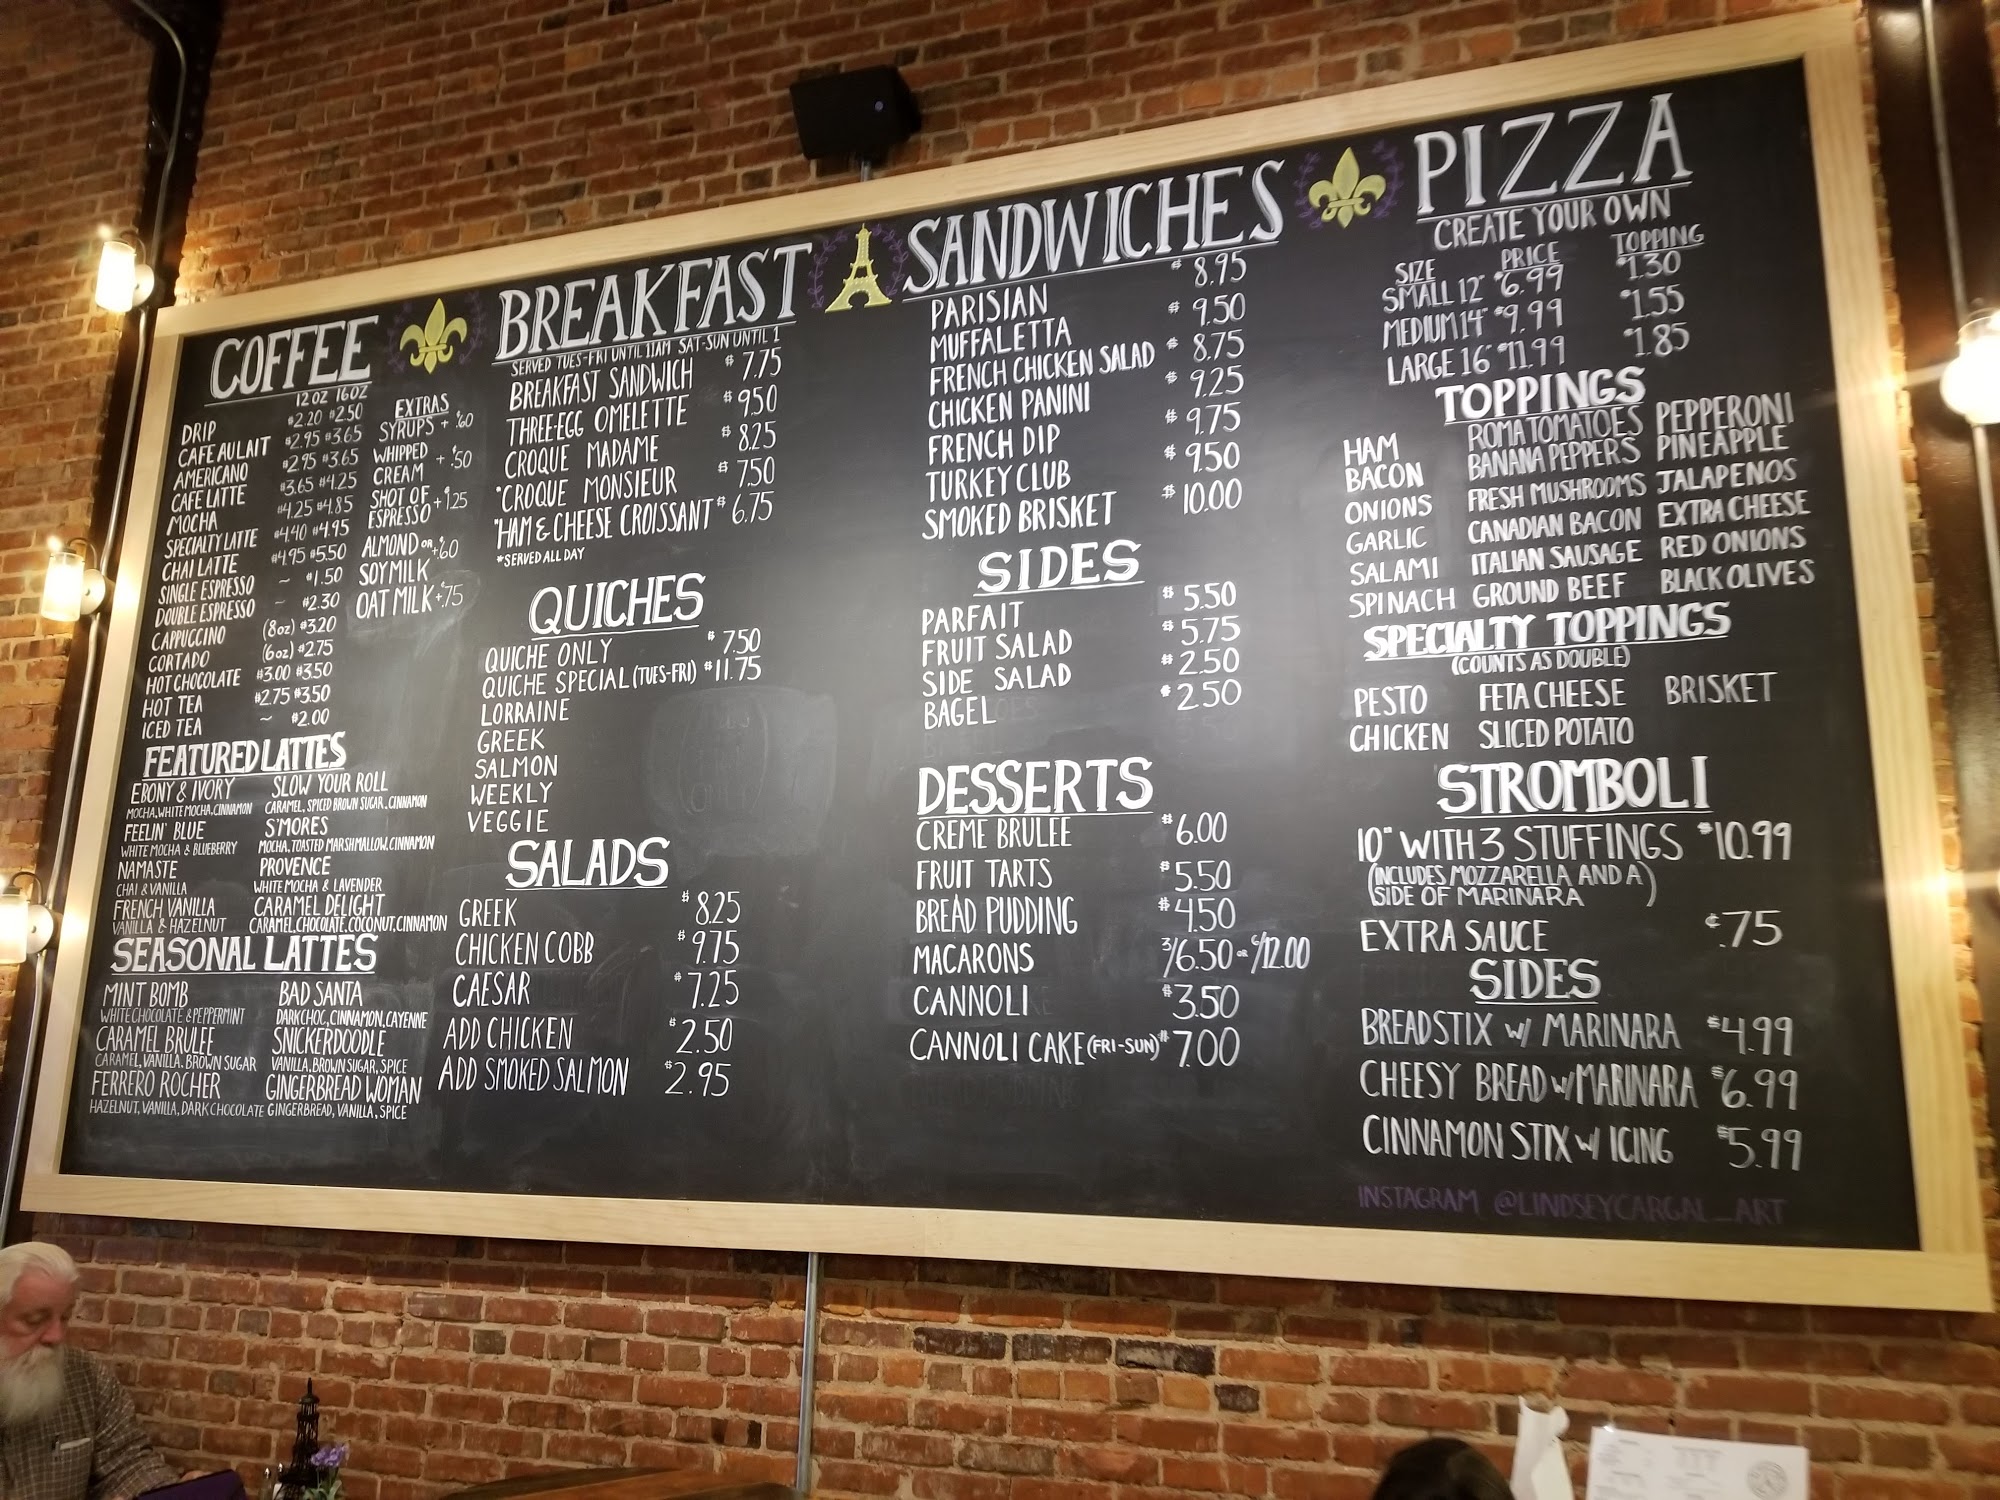 COFFEE
12OZ 16OZ
DRIP $2.20 $2.50
CAFE AU LAIT $2.95 $3.65
AMERICANO $2.95 $3.65
CAFE LATTE $3.65 $4.25
MOCHA $4.25 $4.85
SPECIALTY LATTE $4.40 $4.95
CHAI LATTE $4.95 $5.50
SINGLE ESPRESSO ~ $1.50
DOUBLE ESPRESSO ~ $2.30
CAPPUCCINO (8oz) $3.20
CORTADO (6oz) $2.75
HOT CHOCOLATE $3.00 $3.50
HOT TEA $2.75 $3.50
ICED TEA ~ $2.00
EXTRAS
SYRUPS + ¢.60
WHIPPED
CREAM + ¢.50
SHOT OF
ESPRESSO + $1.25
ALMOND OR
SOY MILK +¢.60
OAT MILK +¢.75
FEATURED LATTES
EBONY & IVORY
MOCHA, WHITE MOCHA, CINNAMON
FEELIN' BLUE
WHITE MOCHA & BLUEBERRY
NAMASTE
CHAI & VANILLA
FRENCH VANILLA
VANILLA & HAZELNUT
SLOW YOUR ROLL
CARAMEL, SPICED BROWN SUGAR, CINNAMON
S'MORES
MOCHA, TOASTED MARSHMALLOW, CINNAMON
PROVENCE
WHITE MOCHA & LAVENDER
CARAMEL DELIGHT
CARAMEL, CHOCOLATE, COCONUT, CINNAMON
SEASONAL LATTES
MINT BOMB
WHITE CHOCOLATE & PEPPERMINT
CARAMEL BRULEE
CARAMEL, VANILLA, BROWN SUGAR
FERRERO ROCHER
HAZELNUT, VANILLA, DARK CHOCOLATE
BAD SANTA
DARK CHOC, CINNAMON, CAYENNE
SNICKERDOODLE
VANILLA, BROWN SUGAR, SPICE
GINGERBREAD WOMAN
GINGERBREAD, VANILLA, SPICE
BREAKFAST
SERVED TUES-FRI UNTIL 11AM SAT-SUN UNTIL 1
BREAKFAST SANDWICH $7.75
THREE-EGG OMELETTE $9.50
CROQUE MADAME $8.25
*CROQUE MONSIEUR $7.50
*HAM & CHEESE CROISSANT $6.75
*SERVED ALL DAY
QUICHES
QUICHE ONLY $7.50
QUICHE SPECIAL (TUES-FRI) $11.75
LORRAINE
GREEK
SALMON
WEEKLY
VEGGIE
SALADS
GREEK $8.25
CHICKEN COBB $9.75
CAESAR $7.25
ADD CHICKEN $2.50
ADD SMOKED SALMON $2.95
SANDWICHES
PARISIAN $8.95
MUFFALETTA $9.50
FRENCH CHICKEN SALAD $8.75
CHICKEN PANINI $9.25
FRENCH DIP $9.75
TURKEY CLUB $9.50
SMOKED BRISKET $10.00
SIDES
PARFAIT $5.50
FRUIT SALAD $5.75
SIDE SALAD $2.50
BAGEL $2.50
DESSERTS
CREME BRULEE $6.00
FRUIT TARTS $5.50
BREAD PUDDING $4.50
MACARONS 3/6.50 OR 6/12.00
CANNOLI $3.50
CANNOLI CAKE (FRI-SUN) $7.00
PIZZA
CREATE YOUR OWN
SIZE PRICE TOPPING
SMALL 12" $6.99 $1.30
MEDIUM 14" $9.99 $1.55
LARGE 16" $11.99 $1.85
TOPPINGS
HAM ROMA TOMATOES PEPPERONI
BACON BANANA PEPPERS PINEAPPLE
ONIONS FRESH MUSHROOMS JALAPENOS
GARLIC CANADIAN BACON EXTRA CHEESE
SALAMI ITALIAN SAUSAGE RED ONIONS
SPINACH GROUND BEEF BLACK OLIVES
SPECIALTY TOPPINGS
(COUNTS AS DOUBLE)
PESTO FETA CHEESE BRISKET
CHICKEN SLICED POTATO
STROMBOLI
10" WITH 3 STUFFINGS $10.99
(INCLUDES MOZZARELLA AND A
SIDE OF MARINARA)
EXTRA SAUCE ¢.75
SIDES
BREADSTIX W/ MARINARA $4.99
CHEESY BREAD W/ MARINARA $6.99
CINNAMON STIX W/ ICING $5.99
INSTAGRAM @LINDSEYCARGAL_ART